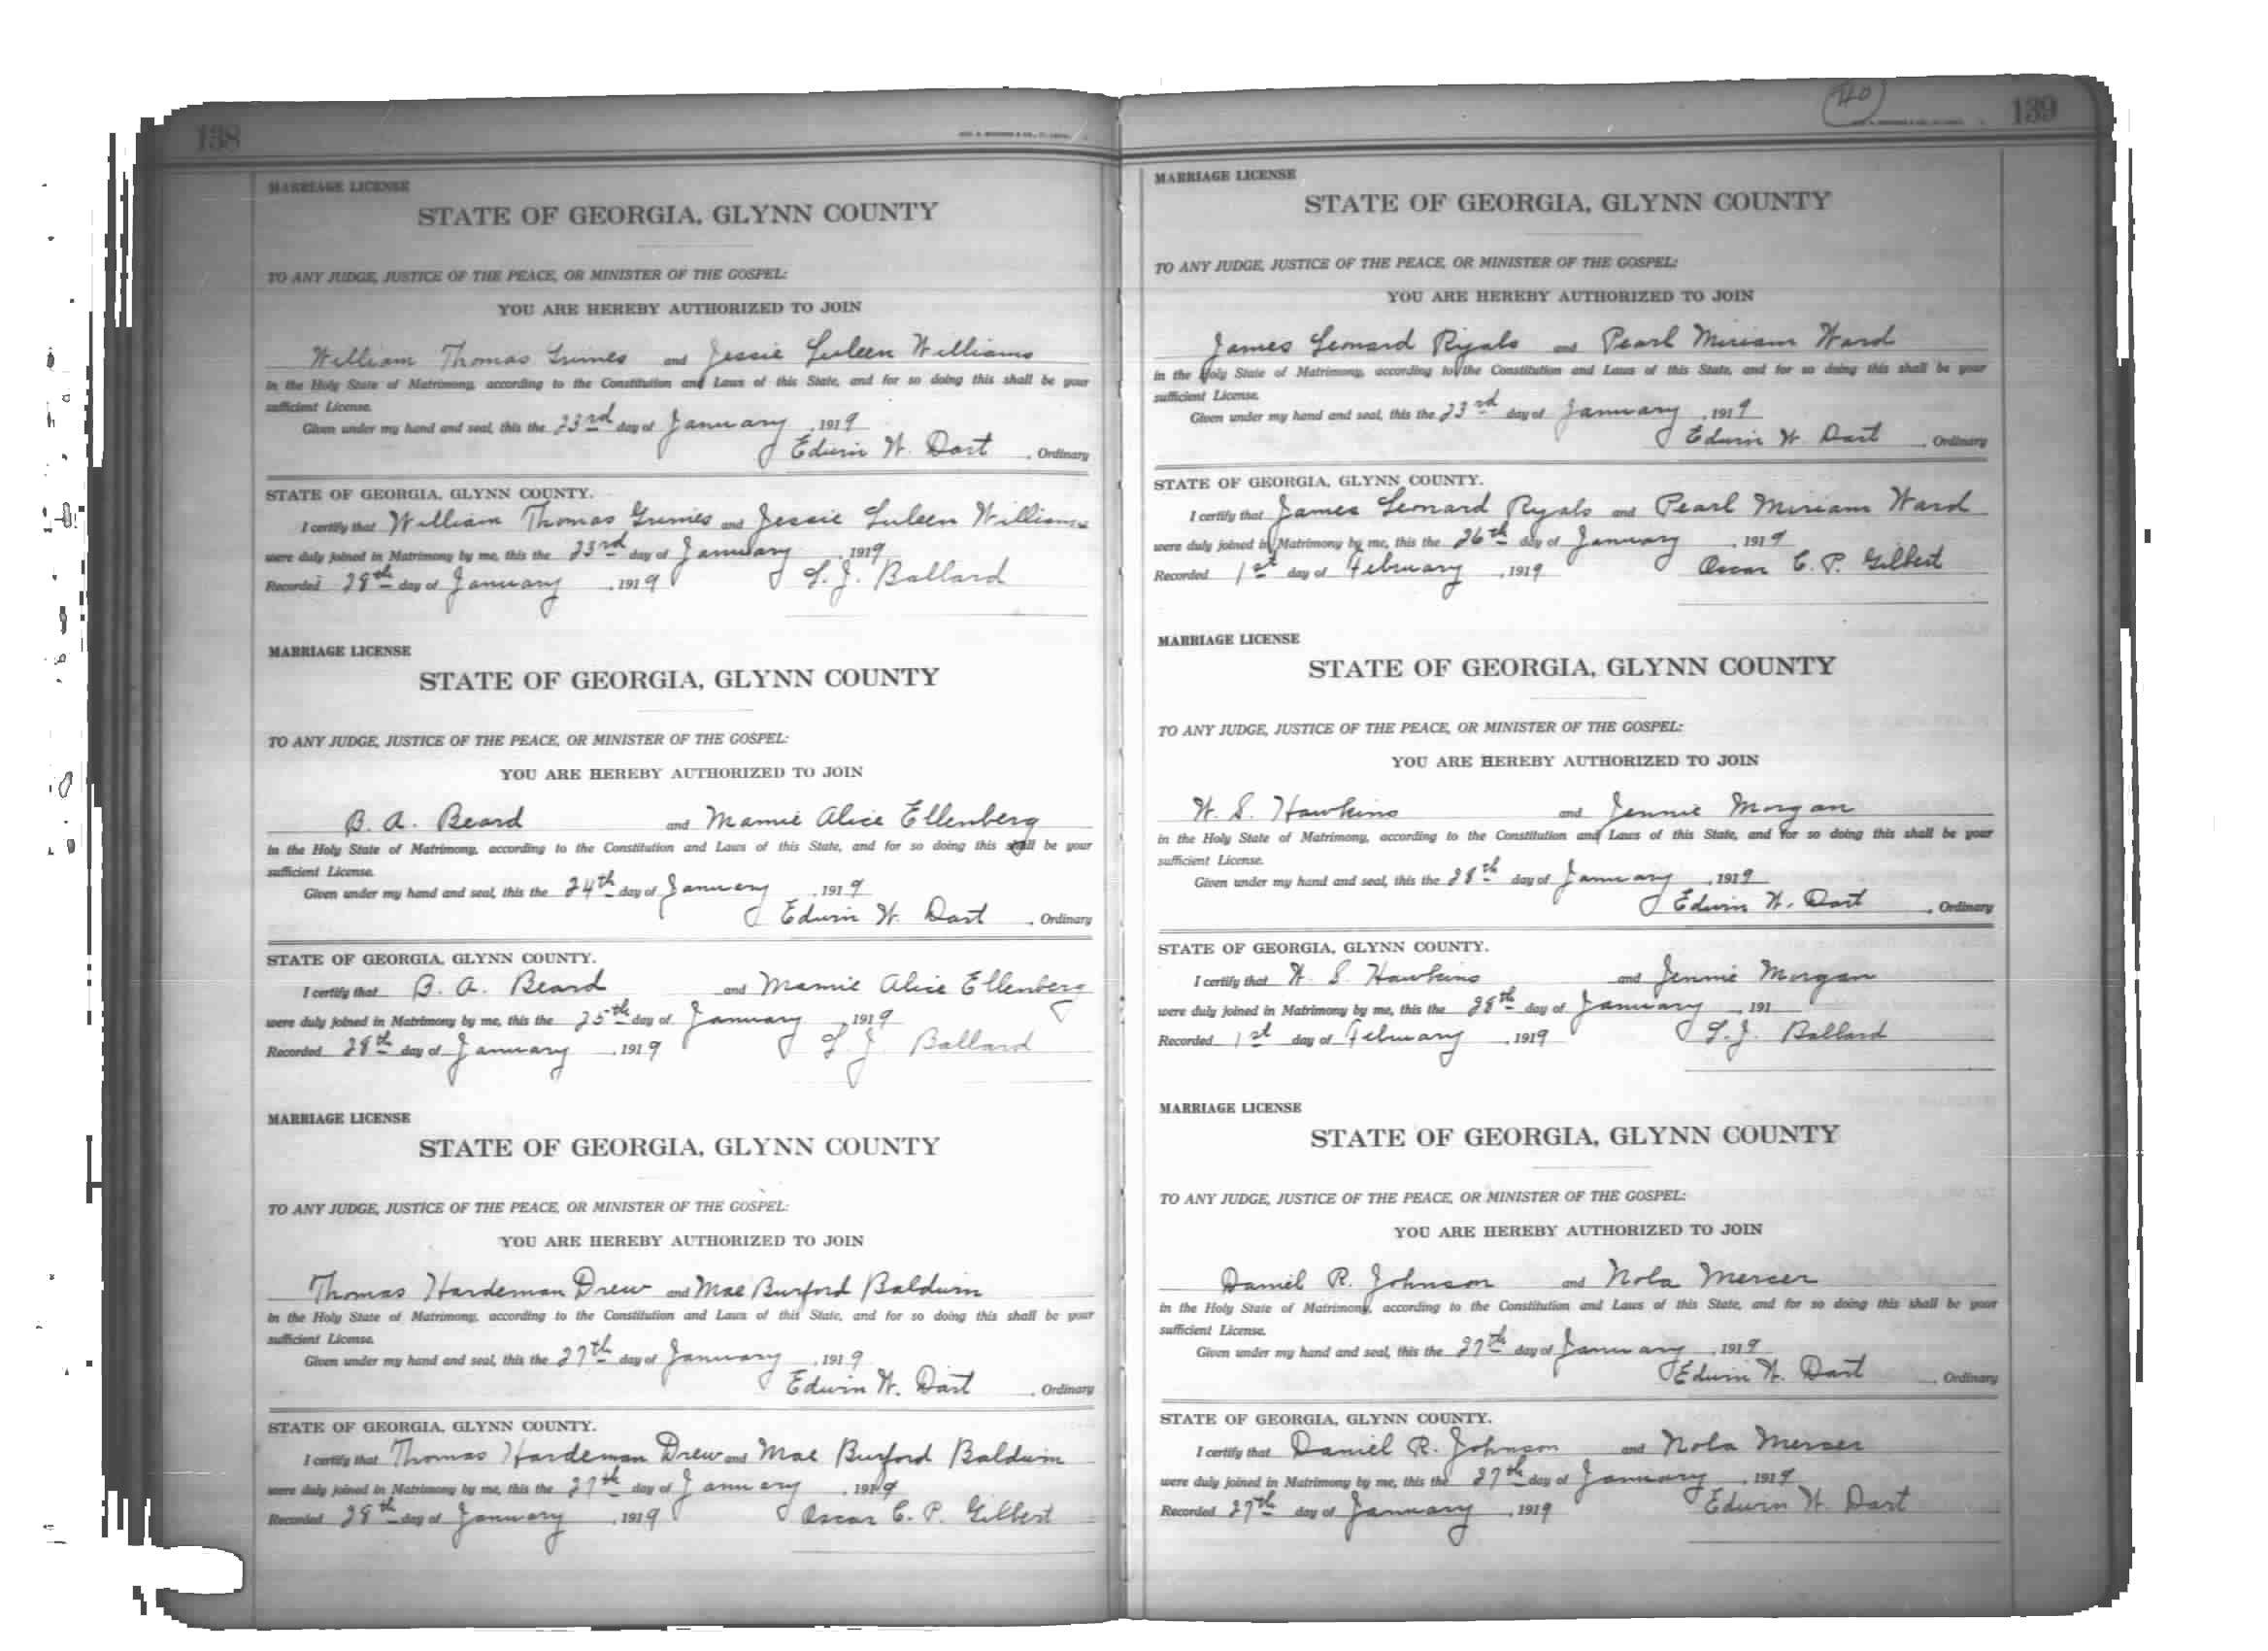 138
MARRIAGE LICENSE
STATE OF GEORGIA, GLYNN COUNTY
TO ANY JUDGE, JUSTICE OF THE PEACE, OR MINISTER OF THE GOSPEL:
YOU ARE HEREBY AUTHORIZED TO JOIN
William Thomas Grimes and Jessie Luleen Williams
in the Holy State of Matrimony, according to the Constitution and Laws of this State, and for so doing this shall be your
sufficient License.
Given under my hand and seal, this the 23rd day of January, 1919
Edwin W. Dart, Ordinary
STATE OF GEORGIA, GLYNN COUNTY.
I certify that William Thomas Grimes and Jessie Luleen Williams
were duly joined in Matrimony by me, this the 23rd day of January, 1919
Recorded 28th day of January, 1919 L. J. Ballard
MARRIAGE LICENSE
STATE OF GEORGIA, GLYNN COUNTY
TO ANY JUDGE, JUSTICE OF THE PEACE, OR MINISTER OF THE GOSPEL:
YOU ARE HEREBY AUTHORIZED TO JOIN
B. A. Beard and Mamie Alice Ellenberg
in the Holy State of Matrimony, according to the Constitution and Laws of this State, and for so doing this shall be your
sufficient License.
Given under my hand and seal, this the 24th day of January, 1919
Edwin W. Dart, Ordinary
STATE OF GEORGIA, GLYNN COUNTY.
I certify that B. A. Beard and Mamie Alice Ellenberg
were duly joined in Matrimony by me, this the 25th day of January, 1919
Recorded 28th day of January, 1919 L. J. Ballard
MARRIAGE LICENSE
STATE OF GEORGIA, GLYNN COUNTY
TO ANY JUDGE, JUSTICE OF THE PEACE, OR MINISTER OF THE GOSPEL:
YOU ARE HEREBY AUTHORIZED TO JOIN
Thomas Hardeman Drew and Mae Burford Baldwin
in the Holy State of Matrimony, according to the Constitution and Laws of this State, and for so doing this shall be your
sufficient License.
Given under my hand and seal, this the 27th day of January, 1919
Edwin W. Dart, Ordinary
STATE OF GEORGIA, GLYNN COUNTY.
I certify that Thomas Hardeman Drew and Mae Burford Baldwin
were duly joined in Matrimony by me, this the 27th day of January, 1919
Recorded 28th day of January, 1919 Oscar C. P. Gilbert
139
MARRIAGE LICENSE
STATE OF GEORGIA, GLYNN COUNTY
TO ANY JUDGE, JUSTICE OF THE PEACE, OR MINISTER OF THE GOSPEL:
YOU ARE HEREBY AUTHORIZED TO JOIN
James Leonard Ryals and Pearl Miriam Ward
in the Holy State of Matrimony, according to the Constitution and Laws of this State, and for so doing this shall be your
sufficient License.
Given under my hand and seal, this the 23rd day of January, 1919
Edwin W. Dart, Ordinary
STATE OF GEORGIA, GLYNN COUNTY.
I certify that James Leonard Ryals and Pearl Miriam Ward
were duly joined in Matrimony by me, this the 26th day of January, 1919
Recorded 1st day of February, 1919 Oscar C. P. Gilbert
MARRIAGE LICENSE
STATE OF GEORGIA, GLYNN COUNTY
TO ANY JUDGE, JUSTICE OF THE PEACE, OR MINISTER OF THE GOSPEL:
YOU ARE HEREBY AUTHORIZED TO JOIN
W. S. Hawkins and Jennie Morgan
in the Holy State of Matrimony, according to the Constitution and Laws of this State, and for so doing this shall be your
sufficient License.
Given under my hand and seal, this the 28th day of January, 1919
Edwin W. Dart, Ordinary
STATE OF GEORGIA, GLYNN COUNTY.
I certify that W. S. Hawkins and Jennie Morgan
were duly joined in Matrimony by me, this the 28th day of January, 191
Recorded 1st day of February, 1919 L. J. Ballard
MARRIAGE LICENSE
STATE OF GEORGIA, GLYNN COUNTY
TO ANY JUDGE, JUSTICE OF THE PEACE, OR MINISTER OF THE GOSPEL:
YOU ARE HEREBY AUTHORIZED TO JOIN
Daniel R. Johnson and Nola Mercer
in the Holy State of Matrimony, according to the Constitution and Laws of this State, and for so doing this shall be your
sufficient License.
Given under my hand and seal, this the 27th day of January, 1919
Edwin W. Dart, Ordinary
STATE OF GEORGIA, GLYNN COUNTY.
I certify that Daniel R. Johnson and Nola Mercer
were duly joined in Matrimony by me, this the 27th day of January, 1919
Recorded 27th day of January, 1919 Edwin W. Dart